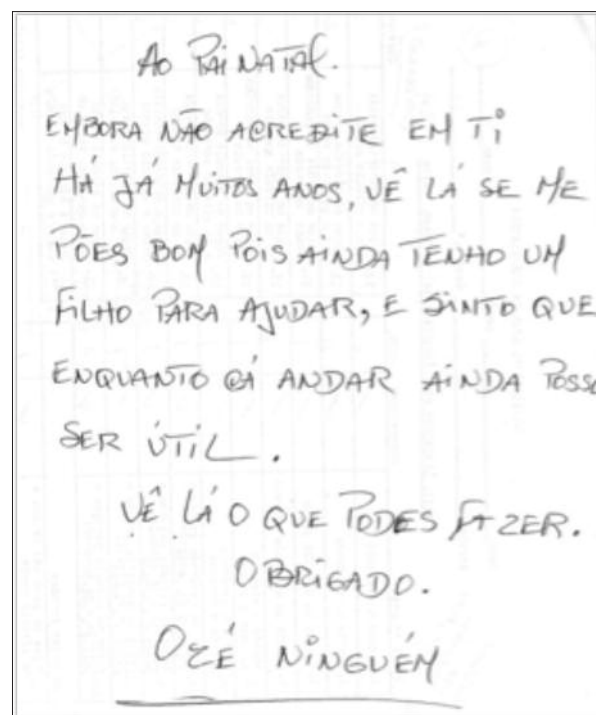 AO PAI NATAL.
EMBORA NÃO ACREDITE EM TI
HÁ JÁ MUITOS ANOS, VÊ LÁ SE ME
PÕES BOM POIS AINDA TENHO UM
FILHO PARA AJUDAR, E SINTO QUE
ENQUANTO CÁ ANDAR AINDA POSSO
SER ÚTIL.
VÊ LÁ O QUE PODES FAZER.
OBRIGADO.
O ZÉ NINGUÉM